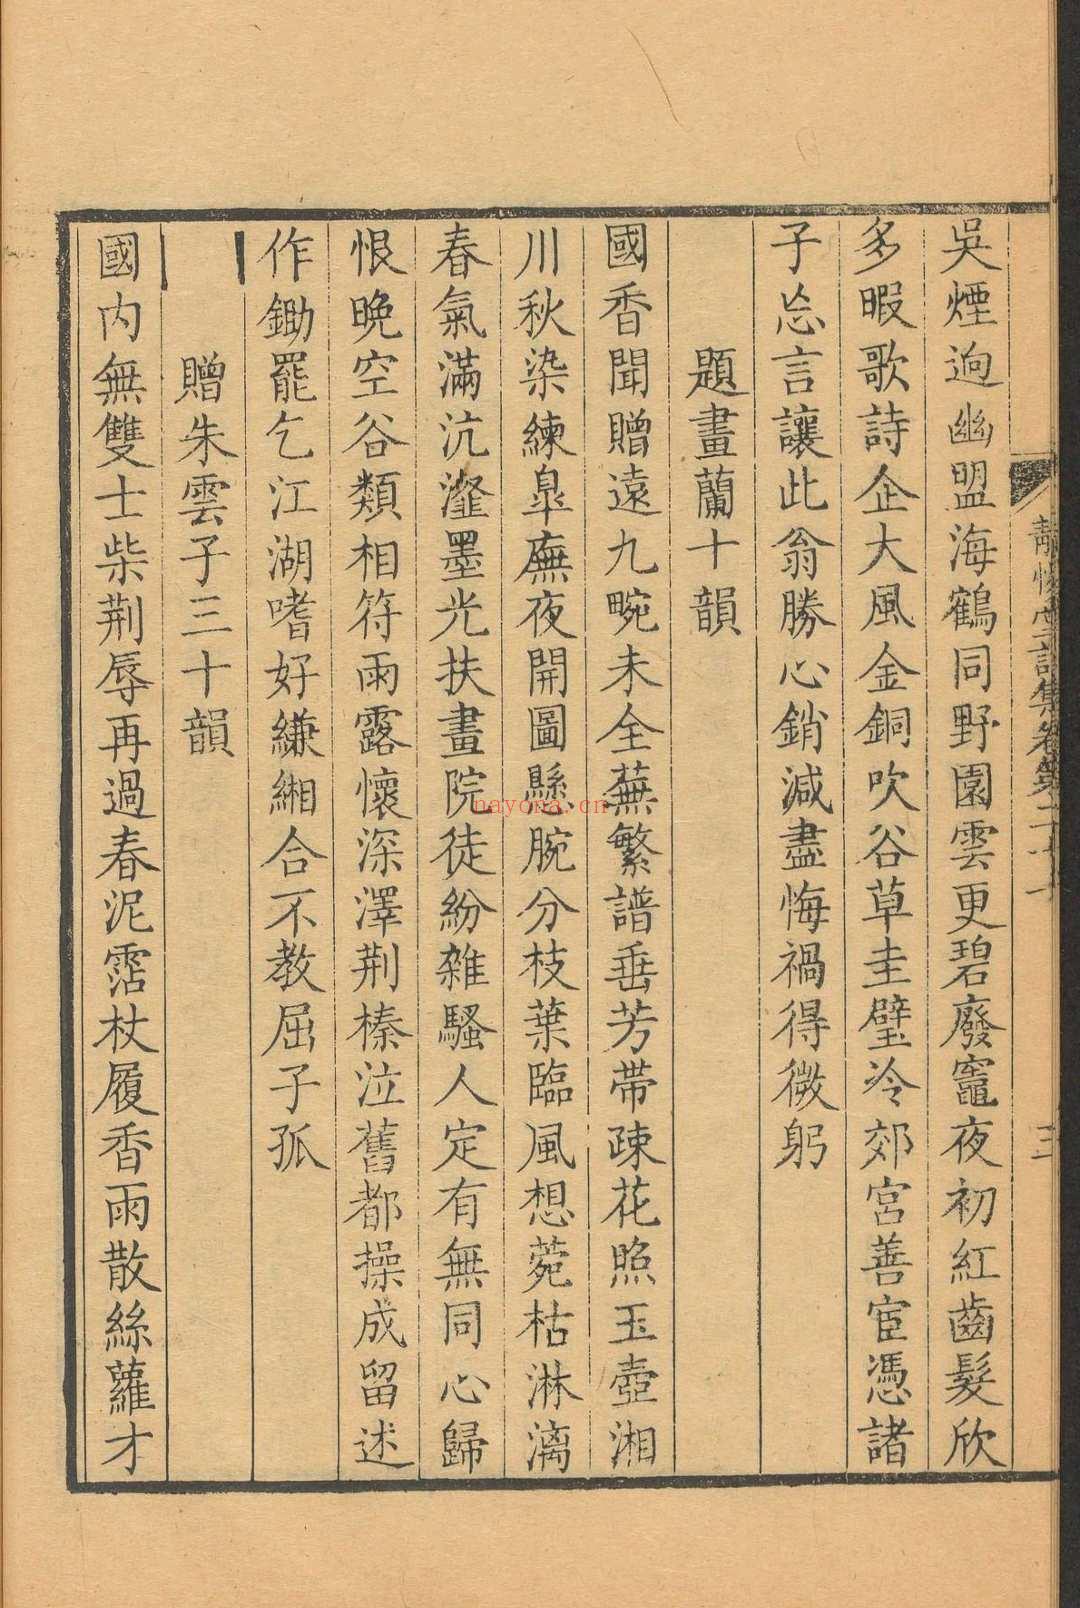 吳煙逈幽盟海鶴同野園雲更碧廢竈夜初紅齒髮欣
多暇歌詩企大風金銅吹谷草圭璧冷郊宮善宦憑諸
子忘言讓此翁勝心銷減盡悔禍得微躬
題畫蘭十韻
國香聞贈遠九畹未全蕪繁譜垂芳帶疎花照玉壺湘
川秋染練皐廡夜開圖懸腕分枝葉臨風想菀枯淋漓
春氣滿沆瀣墨光扶畫院徒紛雜騷人定有無同心歸
恨晚空谷類相符雨露懷深澤荆榛泣舊都操成留述
作鋤罷乞江湖嗜好縑緗合不教屈子孤
贈朱雲子三十韻
國內無雙士柴荆辱再過春泥霑杖履香雨散絲蘿才
集卷第二十一
三
nayona.cn